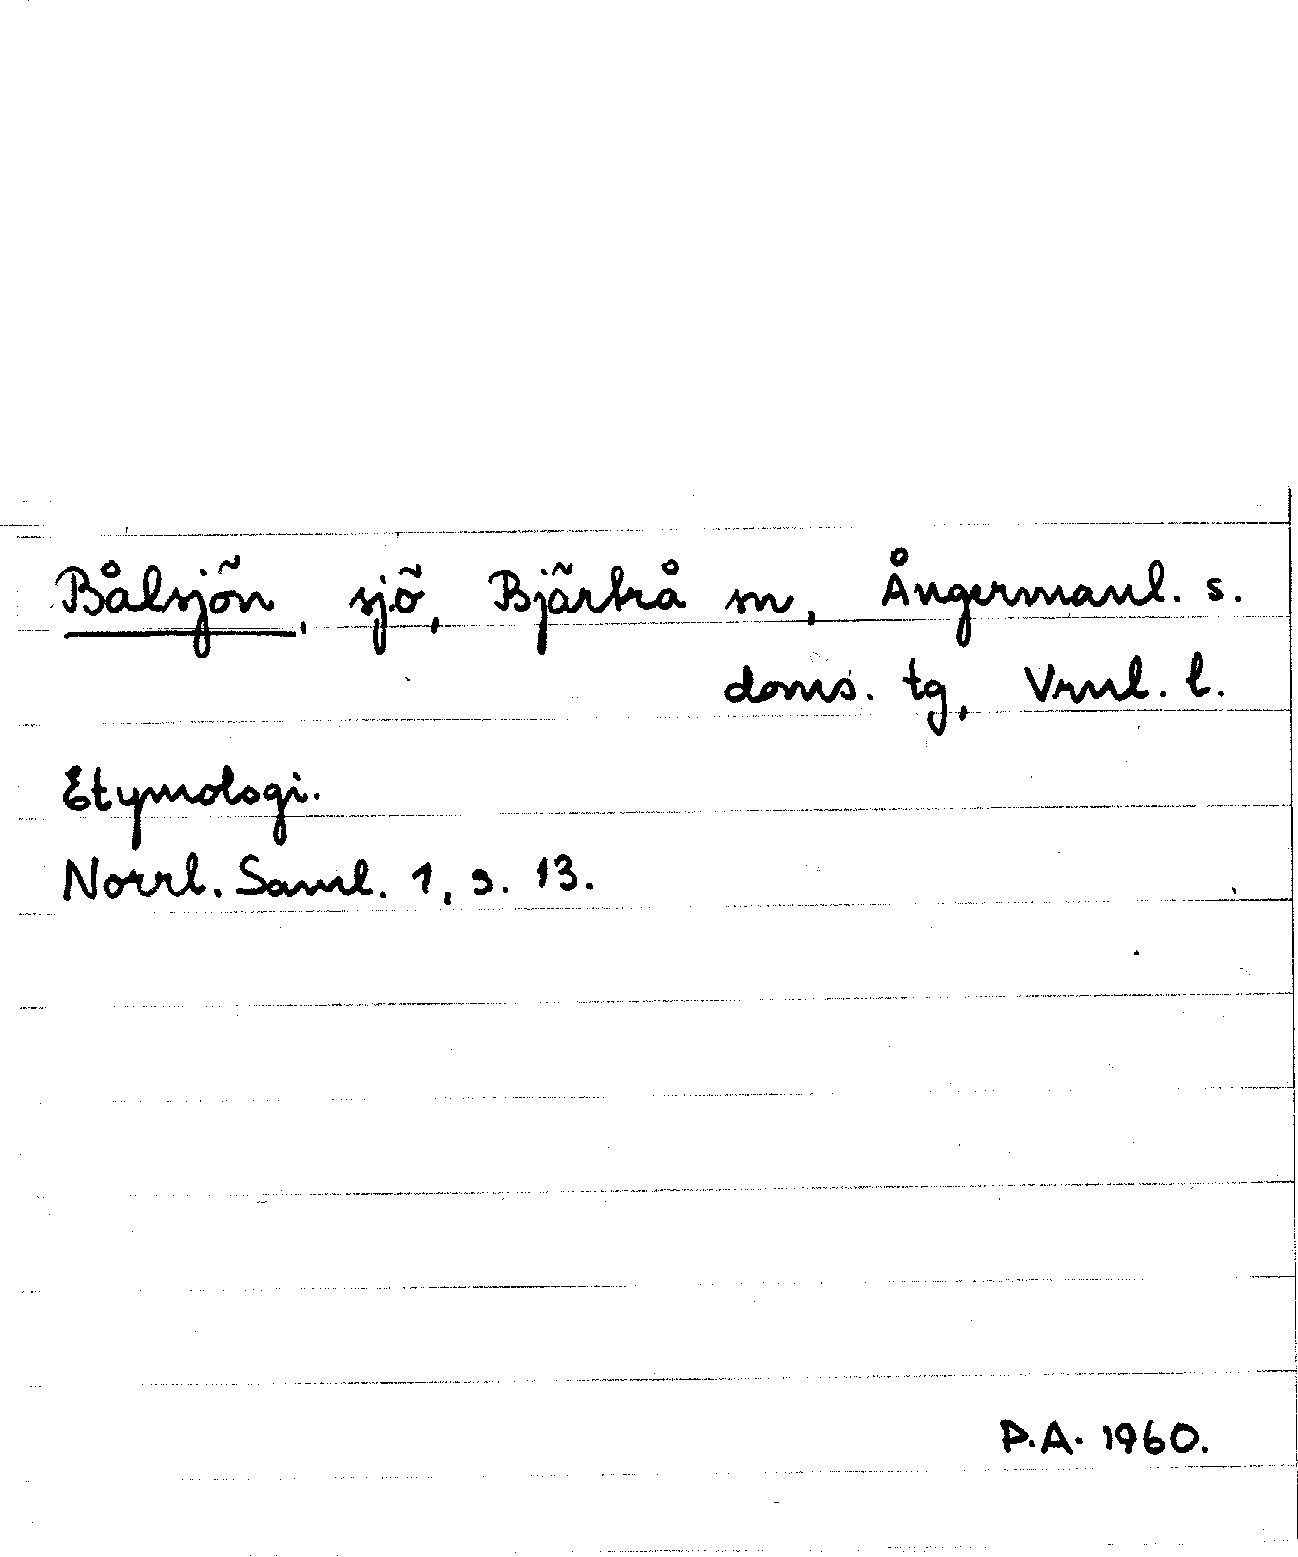 Bålsjön, sjö, Bjärtrå sn, Ångermanl. s.
doms. tg, Vrnl. l.
Etymologi.
Norrl. Saml. 1, s. 13.
P.A. 1960.